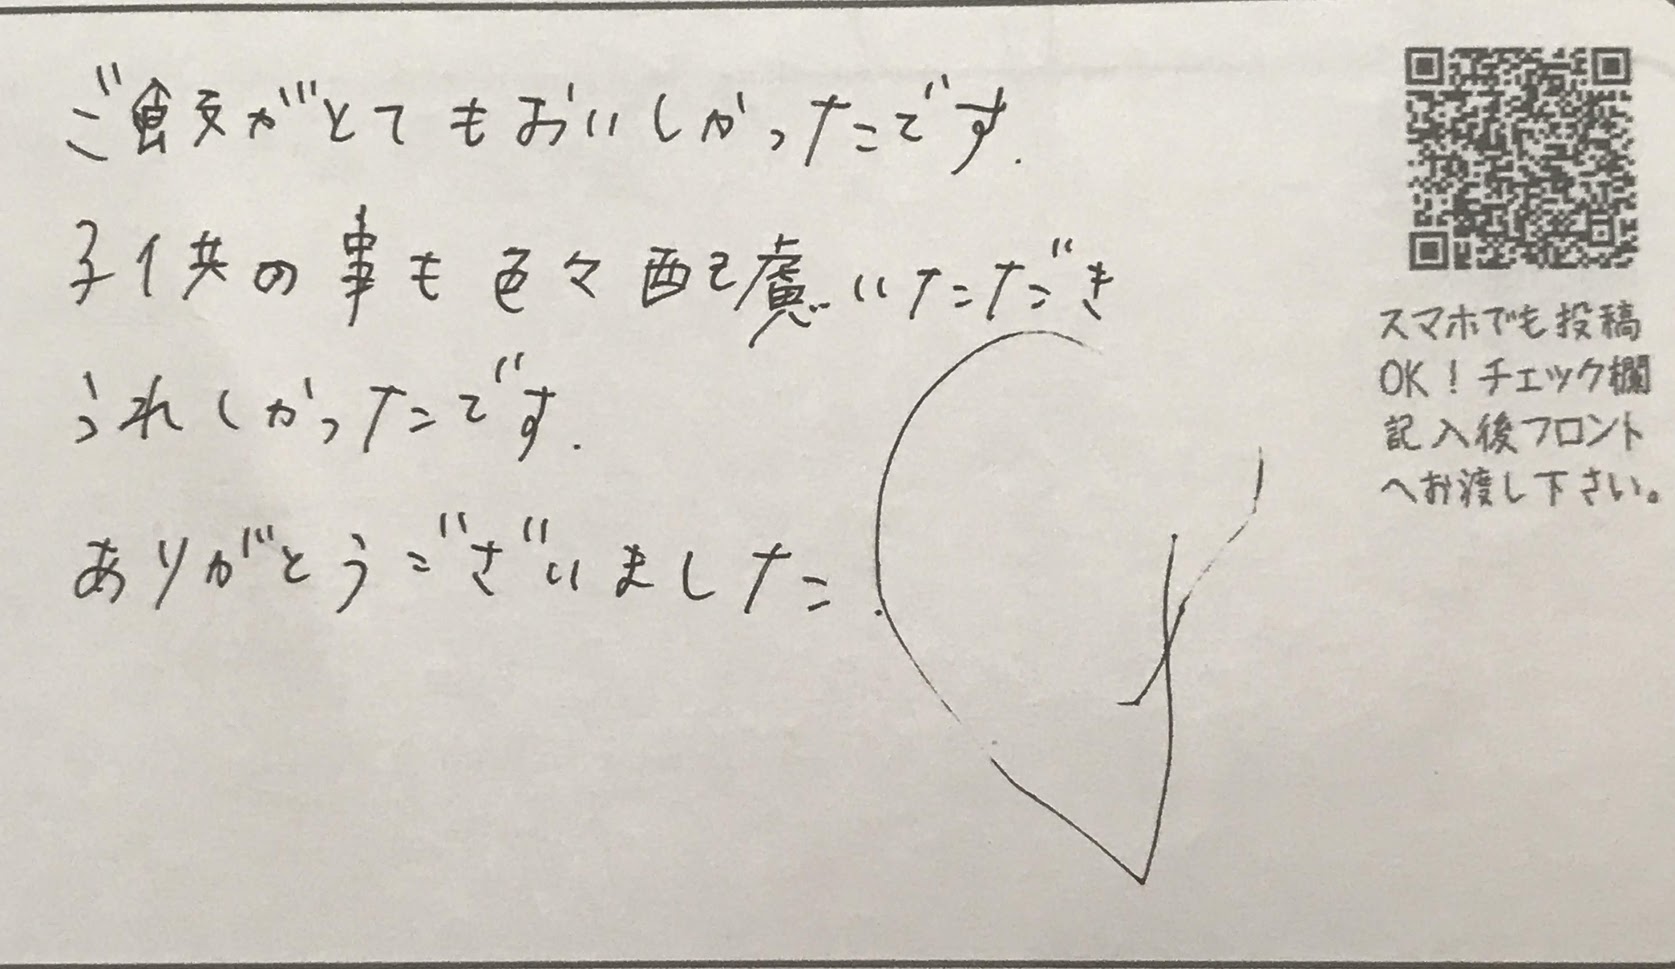 ご飯がとてもおいしかったです.
子供の事も色々配慮いただき
うれしかったです.
ありがとうございました.
スマホでも投稿
OK！チェック欄
記入後フロント
へお渡し下さい。